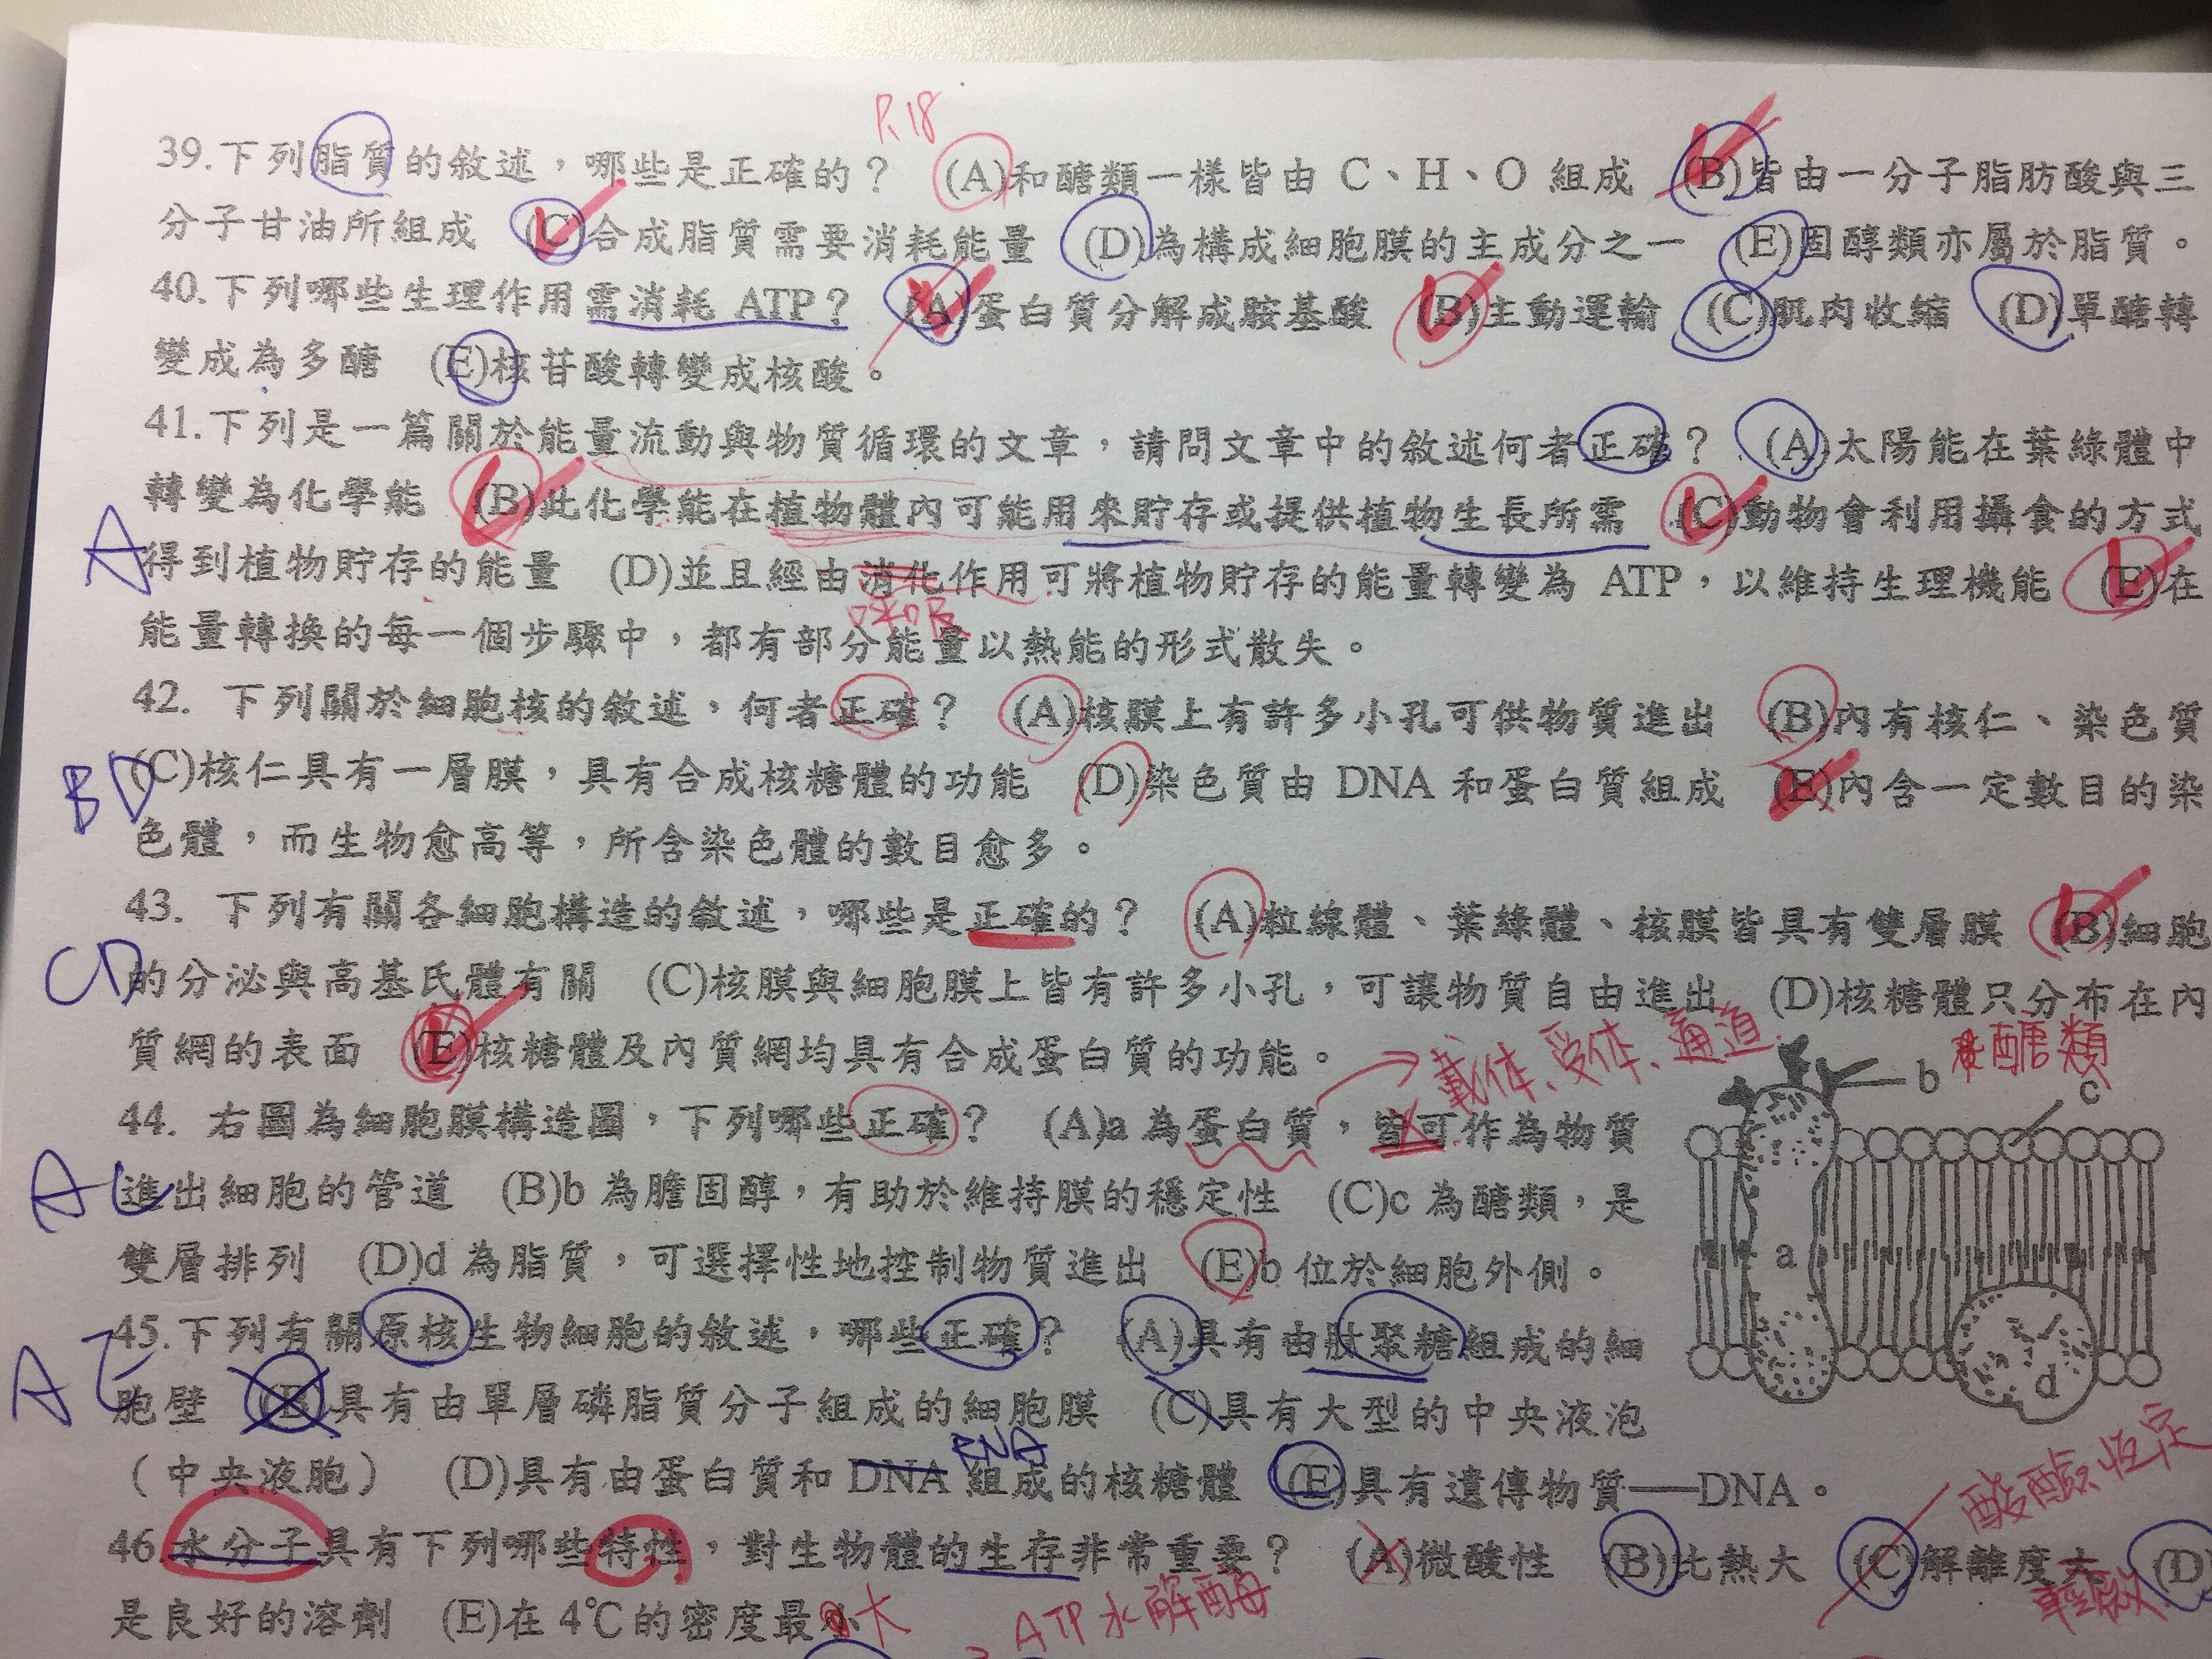 P.18
39.下列脂質的敘述，哪些是正確的？ (A)和醣類一樣皆由 C、H、O 組成 (B)皆由一分子脂肪酸與三
分子甘油所組成 (C)合成脂質需要消耗能量 (D)為構成細胞膜的主成分之一 (E)固醇類亦屬於脂質。
40.下列哪些生理作用需消耗 ATP？ (A)蛋白質分解成胺基酸 (B)主動運輸 (C)肌肉收縮 (D)單醣轉
變成為多醣 (E)核苷酸轉變成核酸。
41.下列是一篇關於能量流動與物質循環的文章，請問文章中的敘述何者正確？ (A)太陽能在葉綠體中
轉變為化學能 (B)此化學能在植物體內可能用來貯存或提供植物生長所需 (C)動物會利用攝食的方式
A
得到植物貯存的能量 (D)並且經由消化作用可將植物貯存的能量轉變為 ATP，以維持生理機能 (E)在
呼吸
能量轉換的每一個步驟中，都有部分能量以熱能的形式散失。
42. 下列關於細胞核的敘述，何者正確？ (A)核膜上有許多小孔可供物質進出 (B)內有核仁、染色質
BD
(C)核仁具有一層膜，具有合成核糖體的功能 (D)染色質由 DNA 和蛋白質組成 (E)內含一定數目的染
色體，而生物愈高等，所含染色體的數目愈多。
43. 下列有關各細胞構造的敘述，哪些是正確的？ (A)粒線體、葉綠體、核膜皆具有雙層膜 (B)細胞
CD
的分泌與高基氏體有關 (C)核膜與細胞膜上皆有許多小孔，可讓物質自由進出 (D)核糖體只分布在內
質網的表面 (E)核糖體及內質網均具有合成蛋白質的功能。
載体、受体、通道
b 醣類
c
44. 右圖為細胞膜構造圖，下列哪些正確？ (A)a 為蛋白質，皆可作為物質
AC
進出細胞的管道 (B)b 為膽固醇，有助於維持膜的穩定性 (C)c 為醣類，是
雙層排列 (D)d 為脂質，可選擇性地控制物質進出 (E)b 位於細胞外側。
a
d
45.下列有關原核生物細胞的敘述，哪些正確？ (A)具有由肽聚糖組成的細
A
胞壁 (B)具有由單層磷脂質分子組成的細胞膜 (C)具有大型的中央液泡
RNA
（中央液胞） (D)具有由蛋白質和 DNA 組成的核糖體 (E)具有遺傳物質──DNA。
酸鹼恆定
46.水分子具有下列哪些特性，對生物體的生存非常重要？ (A)微酸性 (B)比熱大 (C)解離度大 (D)
是良好的溶劑 (E)在 4℃的密度最小
大
ATP 水解酶